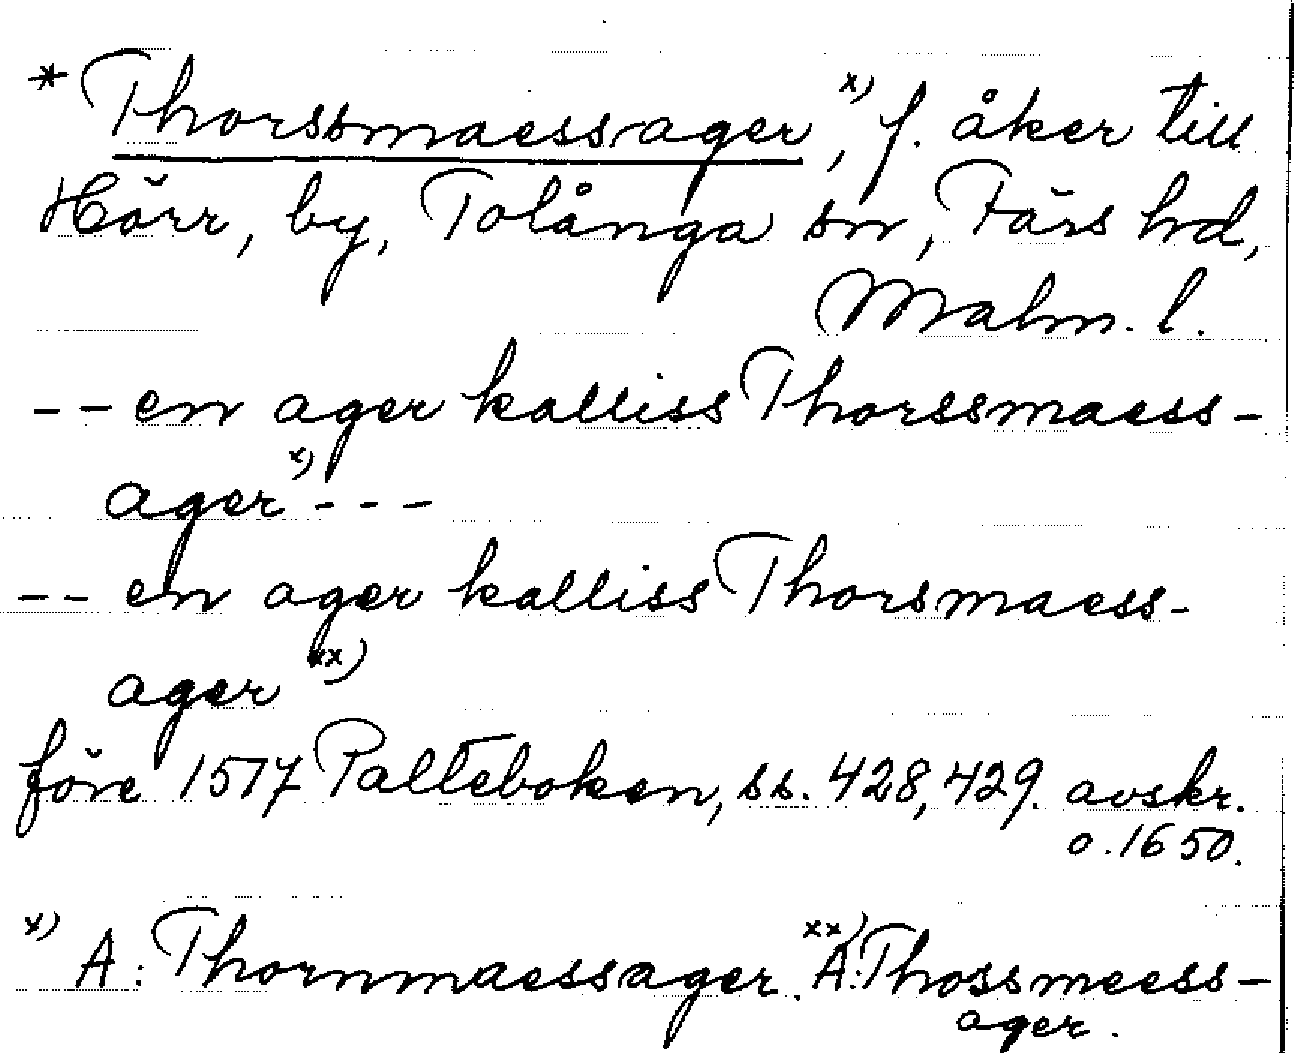 * Thorssmaessager, x) f. åker till
Hörr, by, Tolånga sn, Färs hd,
Malm. l.
-- en ager kalliss Thorssmaess-
ager x) ---
-- en ager kalliss Thorsmaess-
ager xx)
före 1517 Palteboken, ss. 428, 429. avskr.
o. 1650.
x) A: Thornmaessager. xx) A: Thossmeess-
ager.